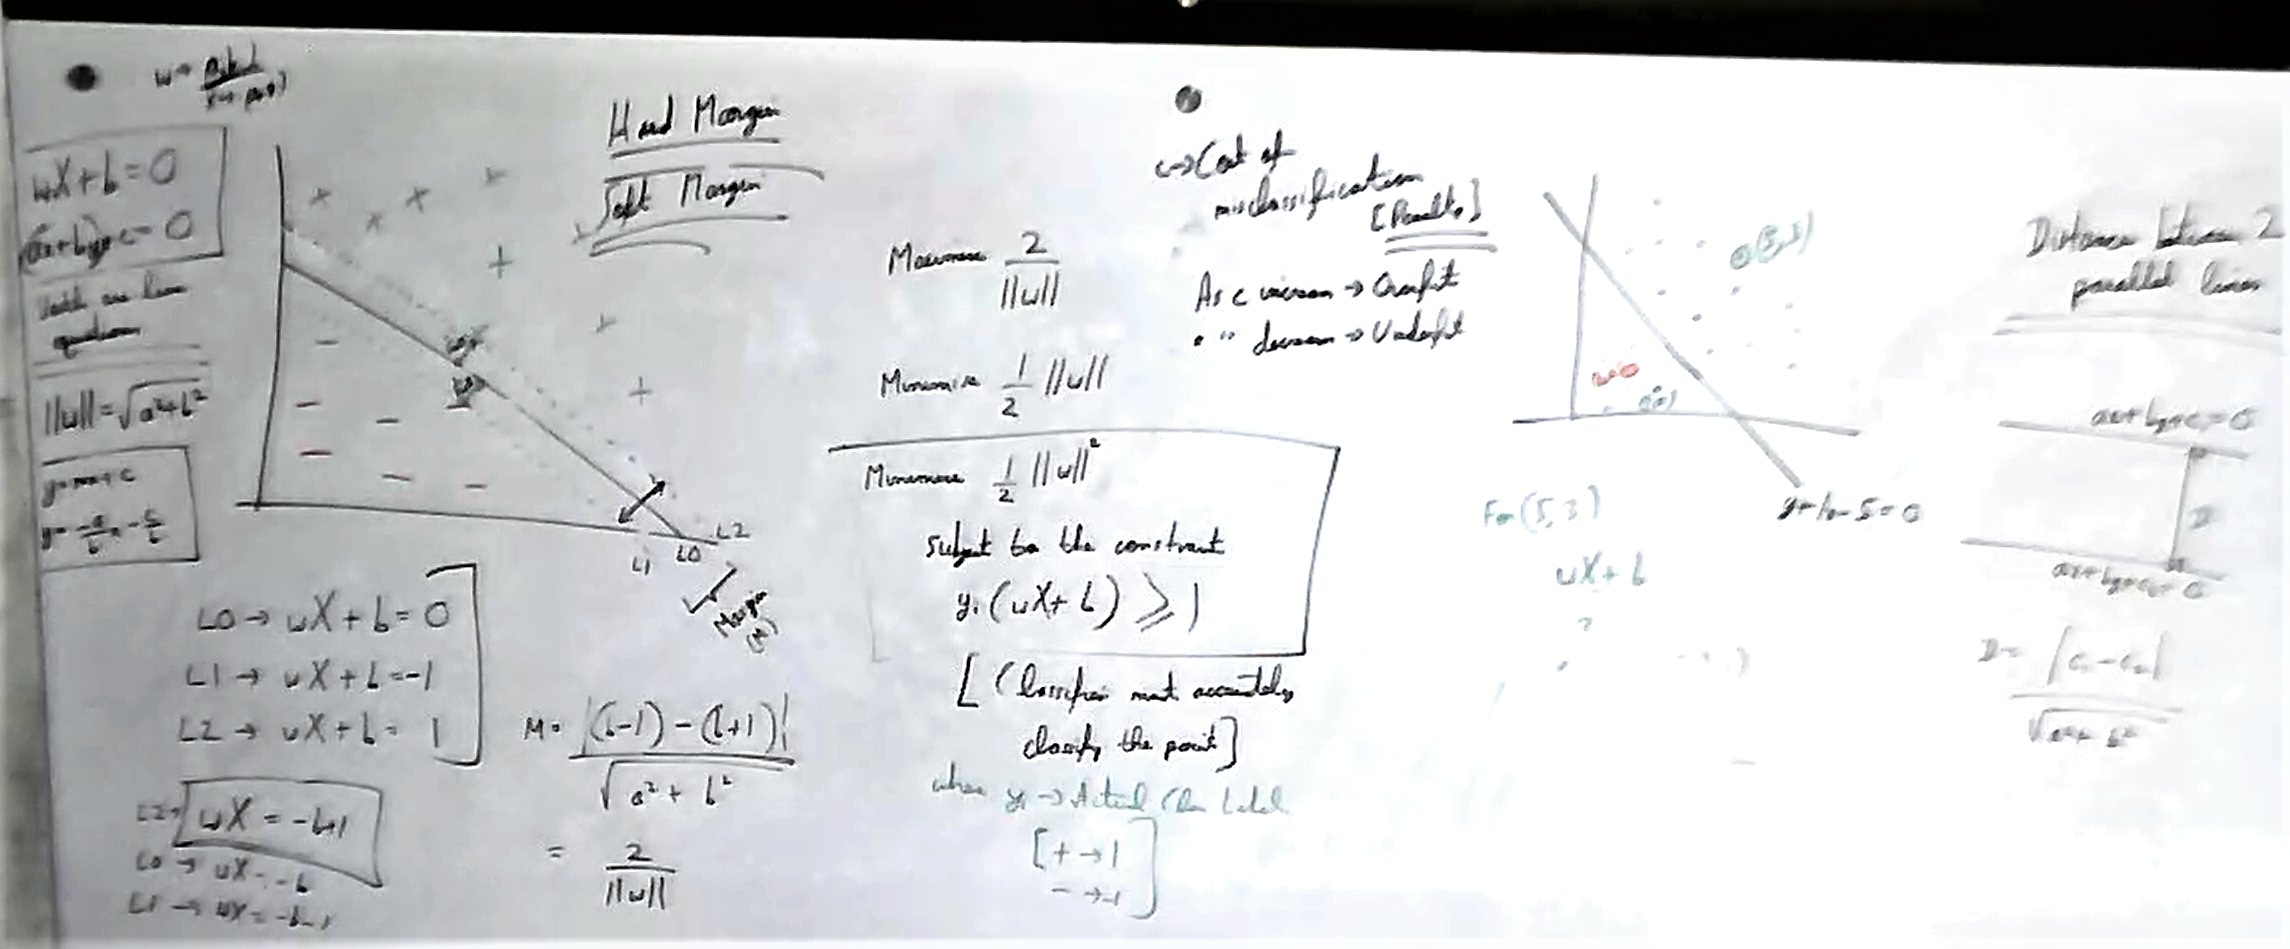 wX+b=0
ax+by+c=0
both are line
equations
||w||=√a²+b²
y=mx+c
y=-a/b x-c/b
Hard Margin
Soft Margin
L1 L0 L2
Margin
(M)
L0→ wX+b=0
L1→ wX+b=-1
L2→ wX+b=1
L2→ wX=-b+1
L0→ wX=-b
L1→ wX=-b-1
M= |(b-1)-(b+1)|
√a²+b²
= 2
||w||
Maximise 2/||w||
Minimise 1/2 ||w||
Minimise 1/2 ||w||²
Subject to the constraint
yi(wX+b) ⩾ 1
[Classifier must accurately
classify the point]
where yi→Actual Class Label
[+→1
-→-1]
c→Cost of
misclassification
[Penalty]
As c increases→Overfit
" " decreases→Underfit
(5,3)
y+x-5=0
For (5,3)
wX+b
?
Distance between 2
parallel lines
ax+by+c₁=0
D
ax+by+c₂=0
D= |c₁-c₂|
√a²+b²